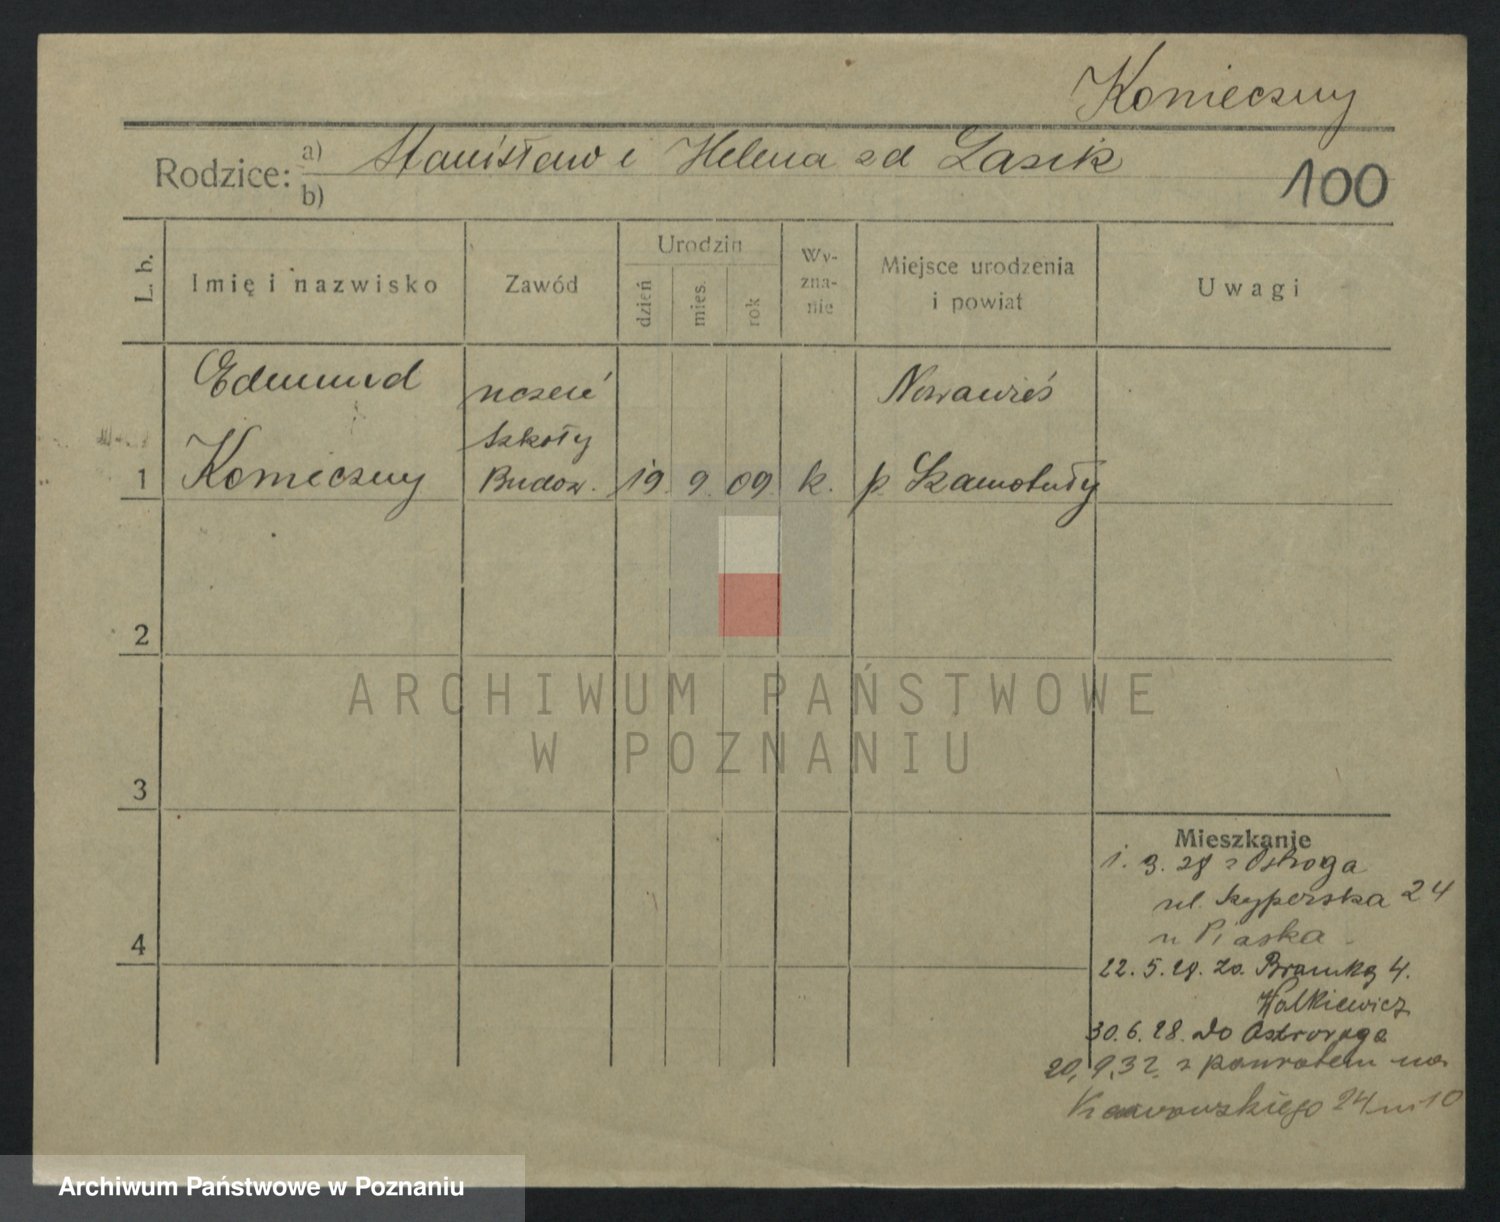 Konieczny
Rodzice: a) Stanisław i Helena zd Lasik
b)
100
L. b.
Imię i nazwisko
Zawód
Urodzin
dzień
mies.
rok
Wy-
zna-
nie
Miejsce urodzenia
i powiat
Uwagi
Edmund
uczeń
Nowawieś
Szkoły
1 Konieczny Budow. 19. 9. 09 k. p. Szamotuły
2
3
4
ARCHIWUM PAŃSTWOWE
W POZNANIU
Mieszkanie
1. 3. 28 z
ul. 24
u Piaska
22. 5. 28. za Bramką 4.
Walkiewicz
30. 6. 28. do Ostroroga
20. 9. 32. z powrotem na
24 m 10
Archiwum Państwowe w Poznaniu